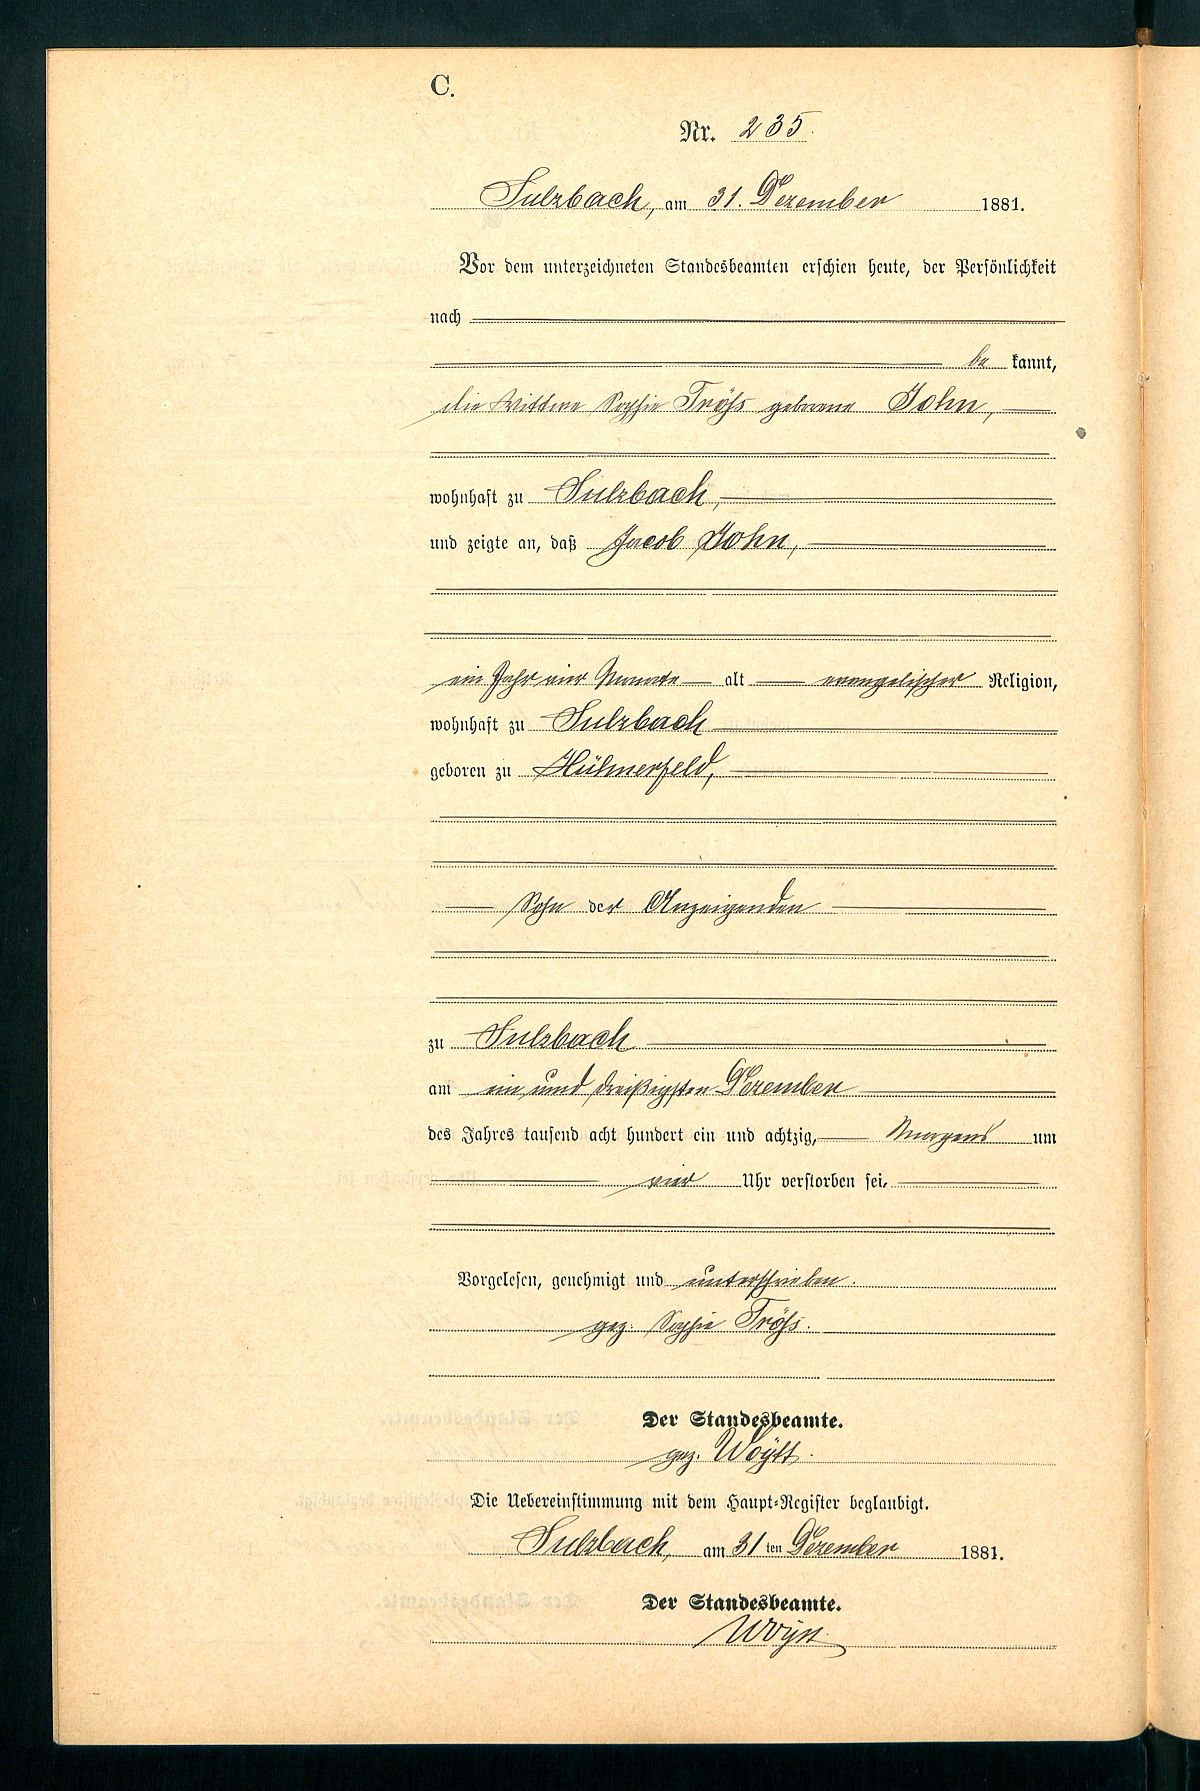 C.
Nr. 235.
Sulzbach, am 31. Dezember 1881.
Vor dem unterzeichneten Standesbeamten erschien heute, der Persönlichkeit
nach
be kannt,
die Wittwe Sophie Tröss geborene John,
wohnhaft zu Sulzbach,
und zeigte an, daß Jacob John,
ein Jahr vier Monate alt evangelischer Religion,
wohnhaft zu Sulzbach
geboren zu Hühnerfeld,
Sohn der Anzeigenden
zu Sulzbach
am ein und dreißigsten Dezember
des Jahres tausend acht hundert ein und achtzig, Morgens um
vier Uhr verstorben sei.
Vorgelesen, genehmigt und unterschrieben.
gez. Sophie Tröss.
Der Standesbeamte.
gez. Woytt.
Die Uebereinstimmung mit dem Haupt-Register beglaubigt.
Sulzbach, am 31 ten Dezember 1881.
Der Standesbeamte.
Woytt